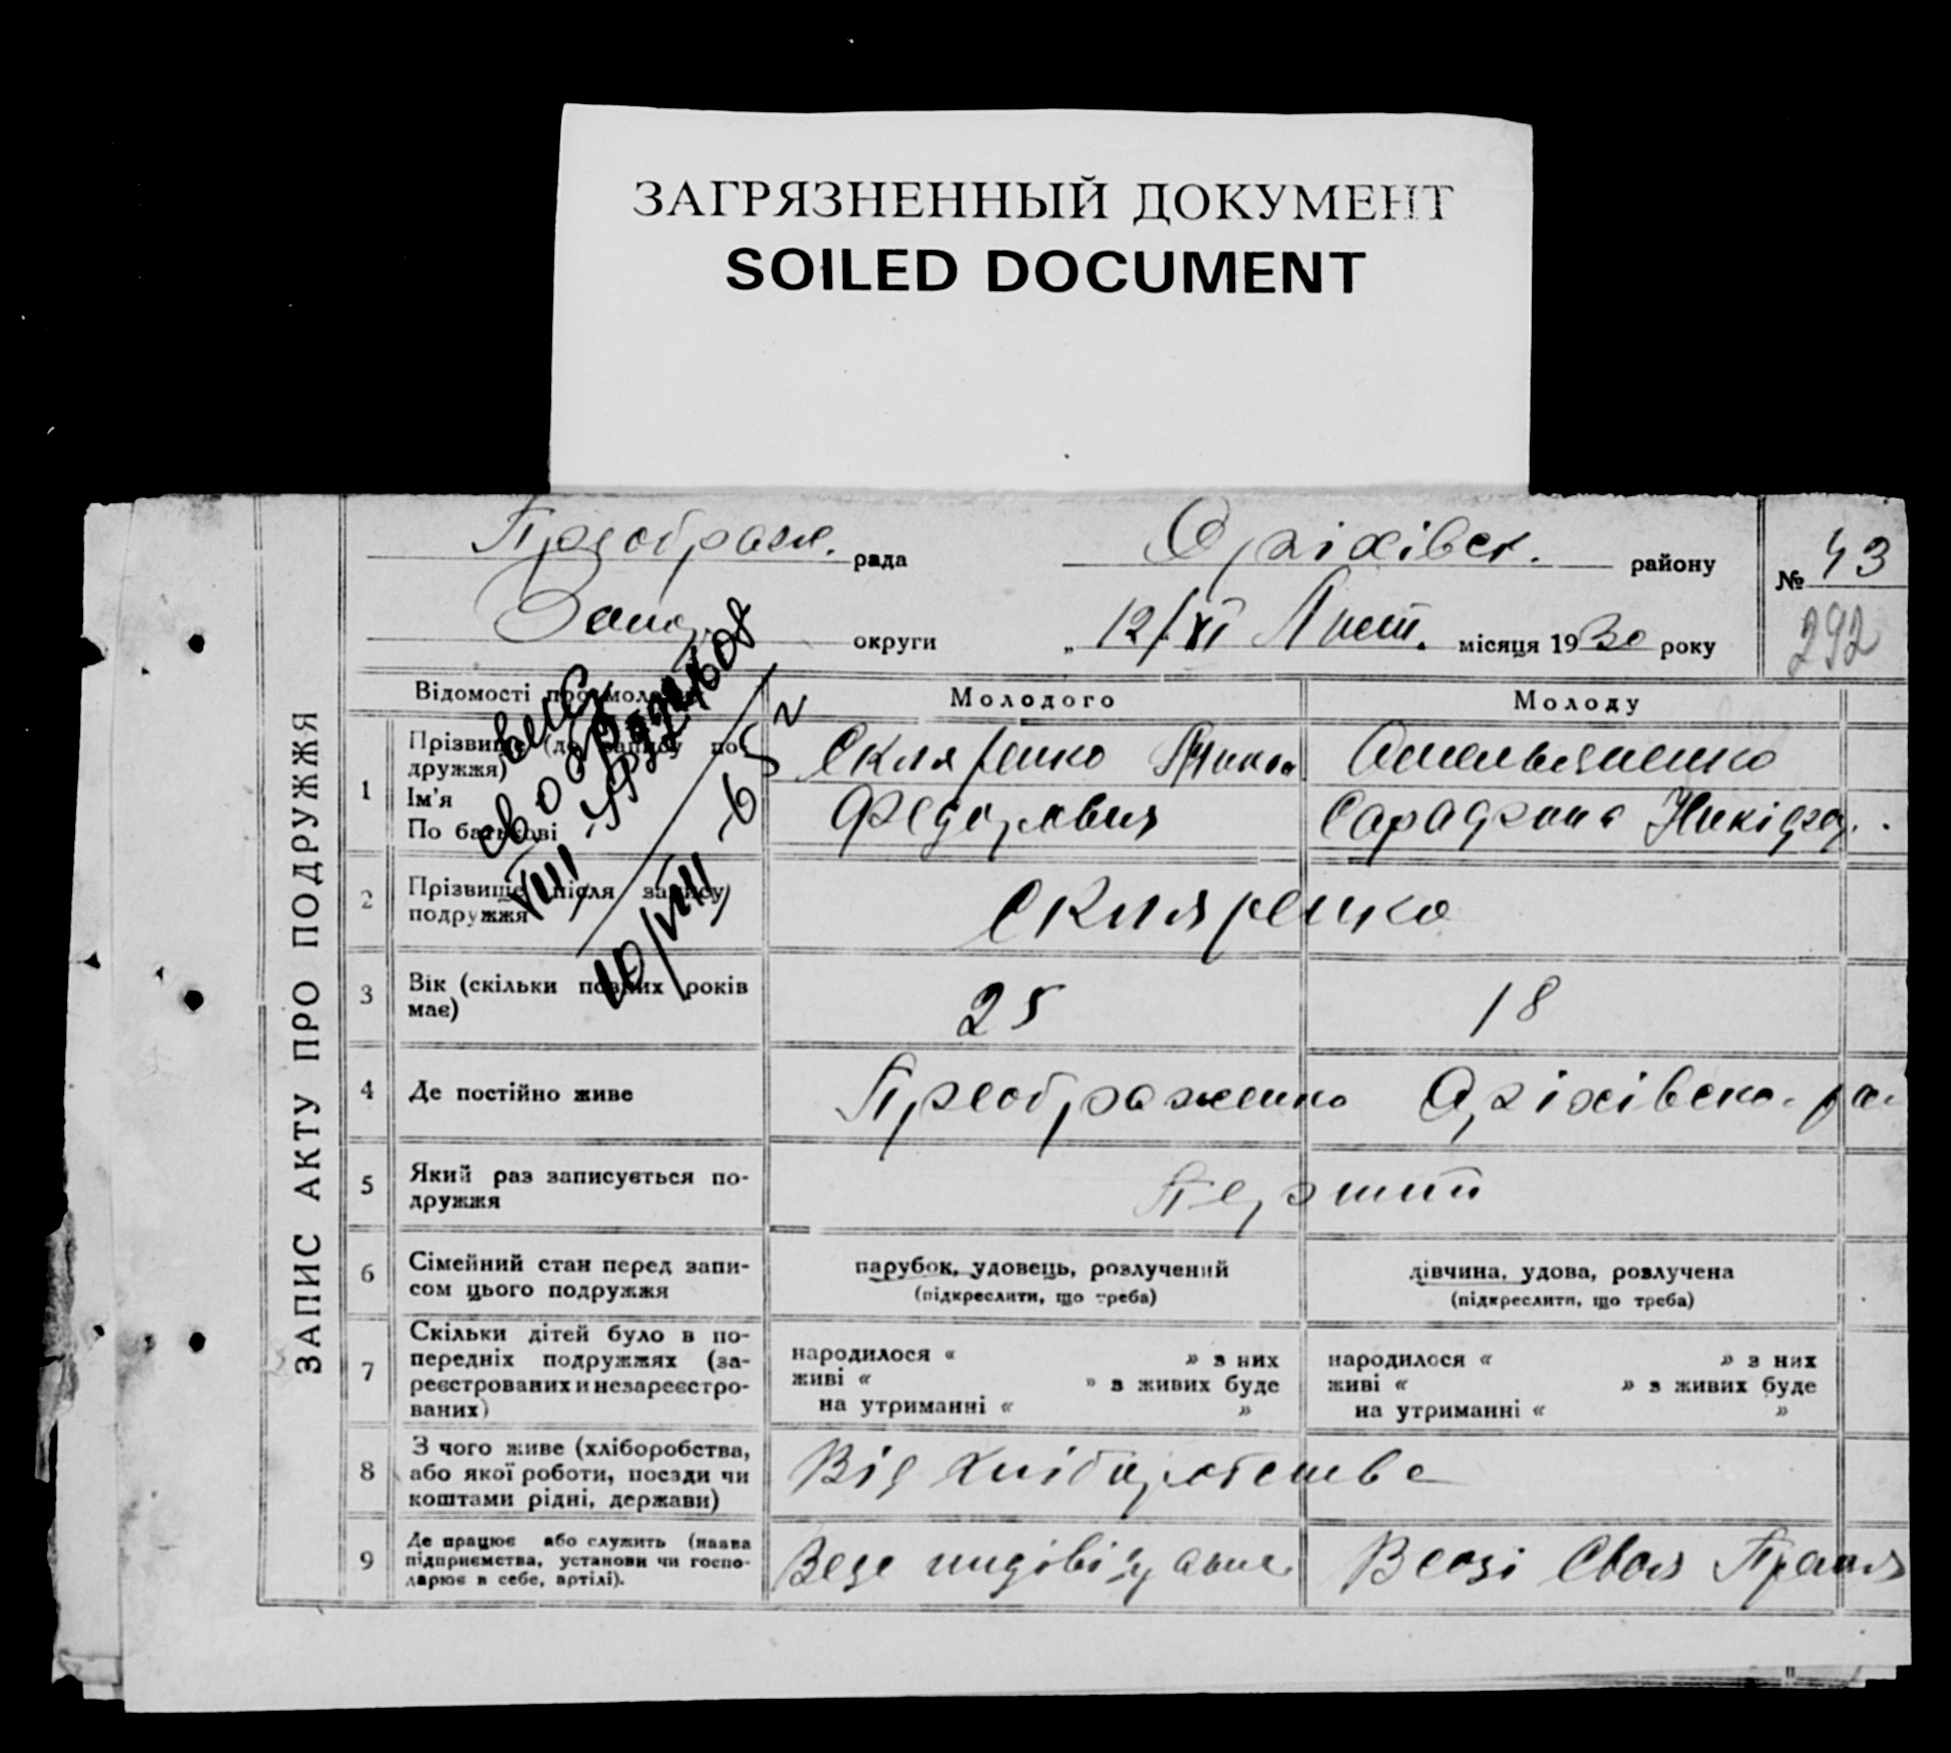 ЗАГРЯЗНЕННЫЙ ДОКУМЕНТ
SOILED DOCUMENT
ЗАПИС АКТУ ПРО ПОДРУЖЖЯ
Преображ. рада Оріхівск. району № 43
Запор. округи „ 12/XI Лист. місяця 1930 року 292
Відомості про молодих Молодого Молоду
1 Прізвище (до запису по-
дружжя)
Ім'я
По батькові
Скляренко
Федорович
Омельяненко
2 Прізвище після запису
подружжя
Скляренко
3 Вік (скільки повних років
має)
25 18
4 Де постійно живе Преображенка Оріхівско. ра
5 Який раз записується по-
дружжя
Перший
6 Сімейний стан перед запи-
сом цього подружжя
парубок, удовець, розлучений
(підкреслити, що треба)
дівчина, удова, розлучена
(підкреслити, що треба)
7 Скільки дітей було в по-
передніх подружжях (за-
реєстрованих и незареєстро-
ваних)
народилося « » з них
живі « » з живих буде
на утриманні « »
народилося « » з них
живі « » з живих буде
на утриманні « »
8 З чого живе (хліборобства,
або якої роботи, поєзди чи
коштами рідні, держави)
Від хліборобства
9 Де працює або служить (назва
підприємства, установи чи госпо-
дарює в себе, артілі).
Веде
Своя Праця
10/VIII